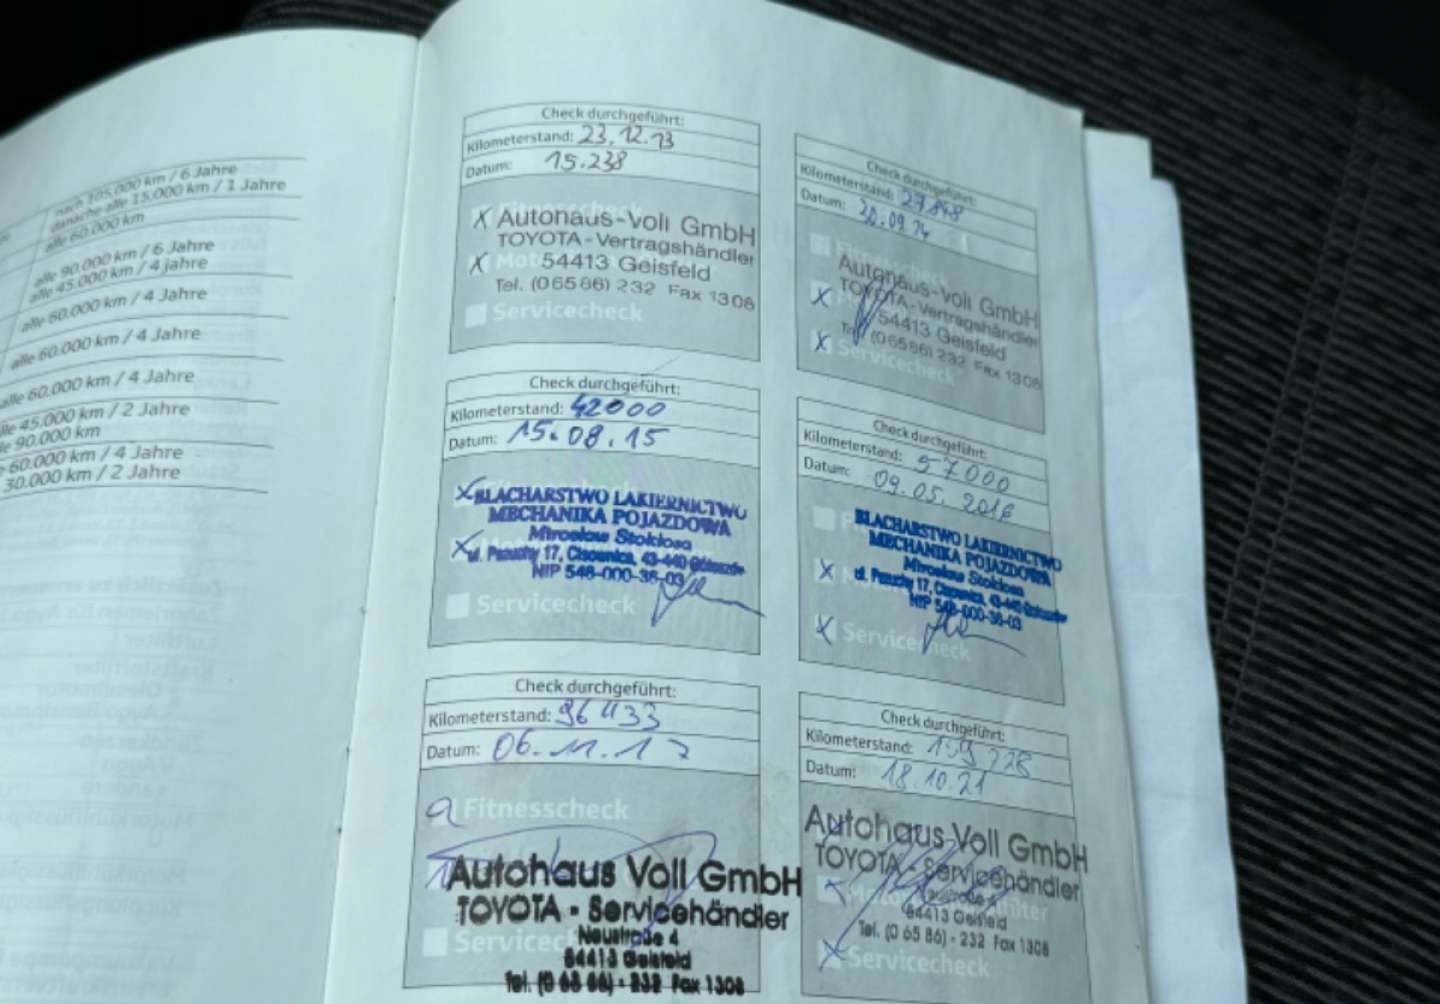 nach 105.000 km / 6 Jahre
danache alle 15.000 km / 1 Jahre
alle 60.000 km
alle 90.000 km / 6 Jahre
alle 45.000 km / 4 jahre
alle 60.000 km / 4 Jahre
alle 60.000 km / 4 Jahre
alle 60.000 km / 4 Jahre
alle 45.000 km / 2 Jahre
90.000 km
60.000 km / 4 Jahre
30.000 km / 2 Jahre
Check durchgeführt:
Kilometerstand: 23.12.13
Datum: 15.238
X Fitnesscheck
Autohaus-Voll GmbH
TOYOTA-Vertragshändler
X 54413 Geisfeld
Tel. (06586) 232 Fax 1308
Servicecheck
Check durchgeführt:
Kilometerstand: 27848
Datum: 30.09.14
Fitnesscheck
Autohaus-Voll GmbH
TOYOTA-Vertragshändler
X 54413 Geisfeld
Tel. (06586) 232 Fax 1308
X Servicecheck
Check durchgeführt:
Kilometerstand: 42000
Datum: 15.08.15
X BLACHARSTWO LAKIERNICTWO
MECHANIKA POJAZDOWA
Mirosław Stokłosa
X ul. Pazuchy 17, Cisownica, 43-440 Goleszów
NIP 548-000-36-03
Servicecheck
Check durchgeführt:
Kilometerstand: 57000
Datum: 09.05.2016
BLACHARSTWO LAKIERNICTWO
MECHANIKA POJAZDOWA
Mirosław Stokłosa
X ul. Pazuchy 17, Cisownica, 43-440 Goleszów
NIP 548-000-36-03
X Servicecheck
Check durchgeführt:
Kilometerstand: 96433
Datum: 06.11.17
Fitnesscheck
Autohaus Voll GmbH
TOYOTA - Servicehändler
Neustraße 4
54413 Geisfeld
Tel. (0 65 86) - 232 Fax 1308
Check durchgeführt:
Kilometerstand: 159728
Datum: 18.10.21
Autohaus Voll GmbH
TOYOTA - Servicehändler
Neustraße 4
54413 Geisfeld
Tel. (0 65 86) - 232 Fax 1308
X Servicecheck